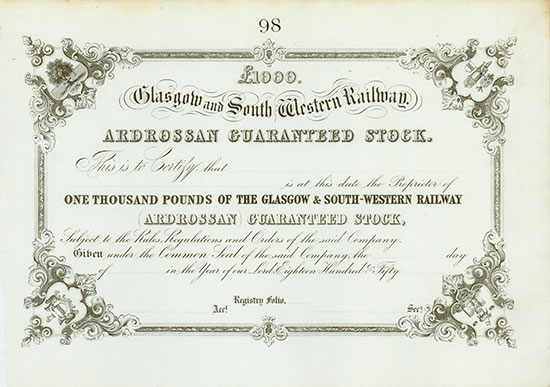 98
£1000.
Glasgow and South Western Railway.
ARDROSSAN GUARANTEED STOCK.
This is to Certify, that
is at this date the Proprietor of
ONE THOUSAND POUNDS OF THE GLASGOW & SOUTH-WESTERN RAILWAY
(ARDROSSAN) GUARANTEED STOCK,
Subject to the Rules, Regulations and Orders of the said Company.
Given under the Common Seal of the said Company, the day
of in the Year of our Lord, Eighteen Hundred & Fifty
Registry Folio,
Acct. Secy.